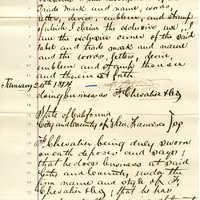 Trade Mark and name, words,
letter, device, emblem, and stamp
of which I claim the exclusive use, I
am the exclusive owner of the said
label and trade mark and name
and the words, letter, device,
emblem and stamp thereon
and therein set forth
January 20th 1874
doing business as F. Chevalier & Co
State of California
City and County of San Francisco } ss
F Chevalier being duly sworn
on oath deposes and says;
that he does business at said
City and County, under the
firm name and style of F.
Chevalier & Co; that he has